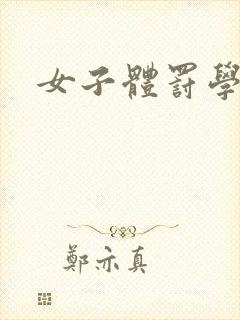 女子體罰學
鄭亦真